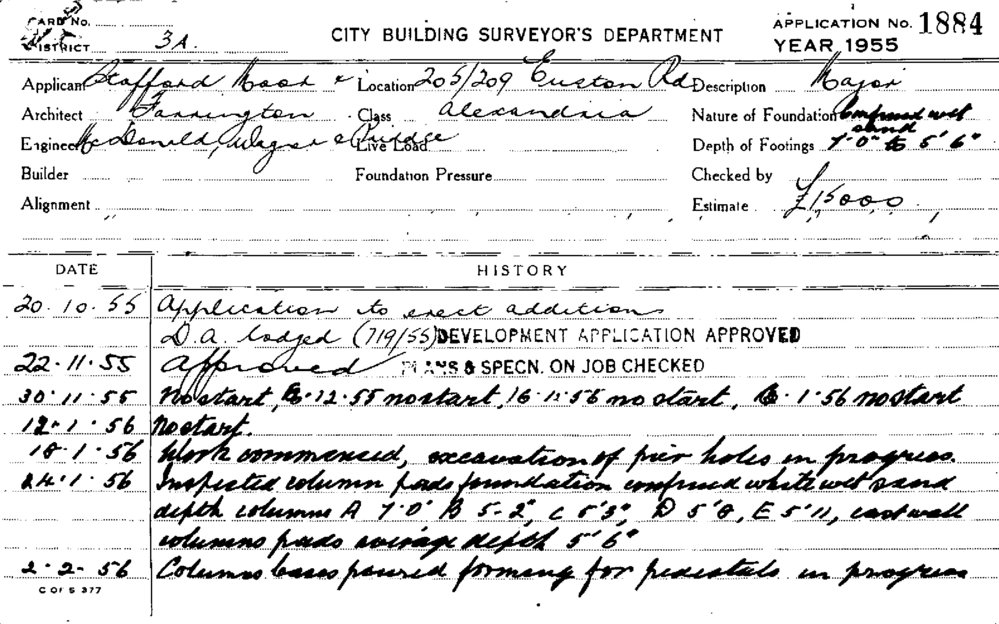 CARD No.
DISTRICT 3A.
CITY BUILDING SURVEYOR'S DEPARTMENT
APPLICATION No. 1884
YEAR 1955
Applicant Stafford Moor & Location 205/209 Euston Rd Description Major
Architect Farrington Class Alexandria Nature of Foundation Confined wet sand
Engineer McDonald, Wagner & Priddle Live Load Depth of Footings 7'0" to 5'6"
Builder Foundation Pressure Checked by
Alignment Estimate £15000
DATE HISTORY
20.10.55 Application to erect additions
D.A. lodged (719/55) DEVELOPMENT APPLICATION APPROVED
22.11.55 Approved PLANS & SPECN. ON JOB CHECKED
30.11.55 No start, 12.55 no start, no start, 1.56 no start
12.1.56 No start.
18.1.56 Work commenced, excavation of pier holes in progress.
24.1.56 Inspected column pads foundation confined white wet sand
depth columns A 7'0" B 5-2", C 5'3", D 5'8, E 5'11, east wall
columns pads average depth 5'6"
2.2.56 Columns bases poured forming for pedestals in progress
C OF S 377